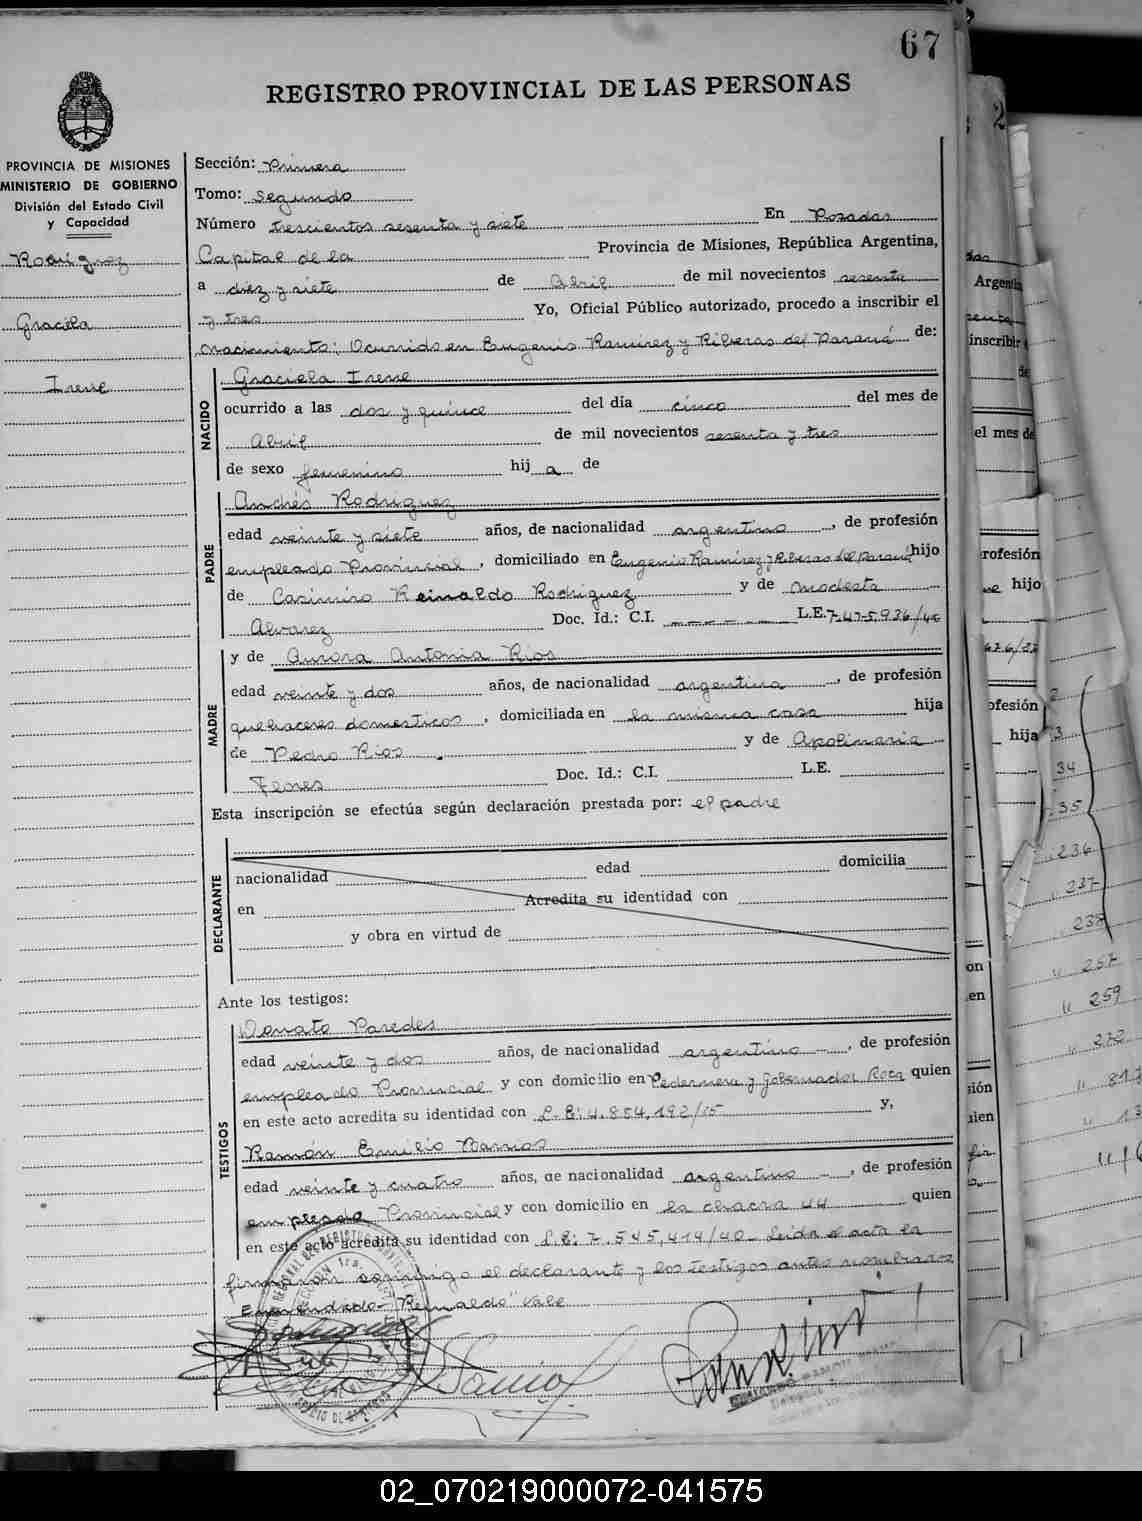 67
REGISTRO PROVINCIAL DE LAS PERSONAS
PROVINCIA DE MISIONES
MINISTERIO DE GOBIERNO
División del Estado Civil
y Capacidad
Rodríguez
Graciela
Irene
Sección: Primera
Tomo: Segundo
Número trescientos sesenta y siete En Posadas
Capital de la Provincia de Misiones, República Argentina,
a diez y siete de Abril de mil novecientos sesenta
y tres Yo, Oficial Público autorizado, procedo a inscribir el
nacimiento: Ocurrido en Eugenio Ramírez y Riberas del Paraná de:
NACIDO
Graciela Irene
ocurrido a las dos y quince del día cinco del mes de
Abril de mil novecientos sesenta y tres
de sexo femenino hij a de
PADRE
Andrés Rodríguez
edad veinte y siete años, de nacionalidad argentino, de profesión
empleado Provincial, domiciliado en Eugenio Ramírez y Riberas del Paraná hijo
de Casimiro Reinaldo Rodríguez y de Modesta
Alvarez Doc. Id.: C.I. L.E. 7.475.936/40
MADRE
y de Aurora Antonia Rios
edad veinte y dos años, de nacionalidad argentina, de profesión
quehaceres domesticos, domiciliada en la misma casa hija
de Pedro Rios y de Apolinaria
Doc. Id.: C.I. L.E.
Esta inscripción se efectúa según declaración prestada por: el padre
DECLARANTE
nacionalidad edad domicilia
en Acredita su identidad con
y obra en virtud de
Ante los testigos:
TESTIGOS
Donato Paredes
edad veinte y dos años, de nacionalidad argentino, de profesión
empleado Provincial y con domicilio en Pedernera y Gobernador Roca quien
en este acto acredita su identidad con L.E: 4.854.192/15 y,
Ramón Emilio Barrios
edad veinte y cuatro años, de nacionalidad argentino, de profesión
empleado Provincial y con domicilio en la chacra 44 quien
en este acto acredita su identidad con L.E: 7.545.414/40 Leída el acta la
firmaron conmigo el declarante y los testigos antes nombrados
Enmendado "Reinaldo" Vale
02_070219000072-041575